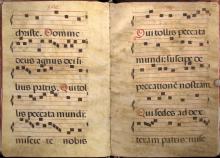 christe. Domine
deus agnus dei fi
lius patris. Qui tol
lis peccata mundi:
misere re nobis
Qui tollis peccata
mundi: suscipe de
precationē nostram
Qui sedes ad dex
teram patris: mise